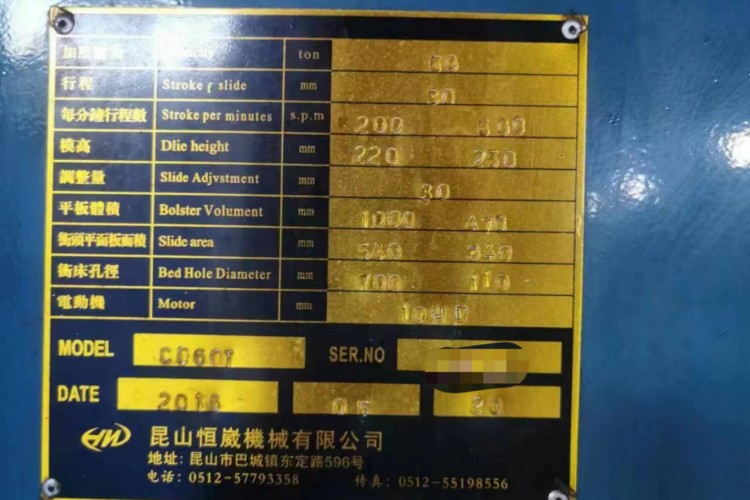 加壓 ton 60
行程 Stroke r slide mm 30
每分鐘行程數 Stroke per minutes s.p.m 200
模高 Dlie height mm 220 230
調整量 Slide Adjvstment mm 30
平板體積 Bolster Volument mm 1000 470
衝頭平面板面積 Slide area mm 540
衝床孔徑 Bed Hole Diameter mm 700 110
電動機 Motor mm 10HP
MODEL CD60T SER.NO
DATE 2018 05 20
HW 昆山恒崴機械有限公司
地址: 昆山市巴城镇东定路596号
电话: 0512-57793358 传真: 0512-55198556